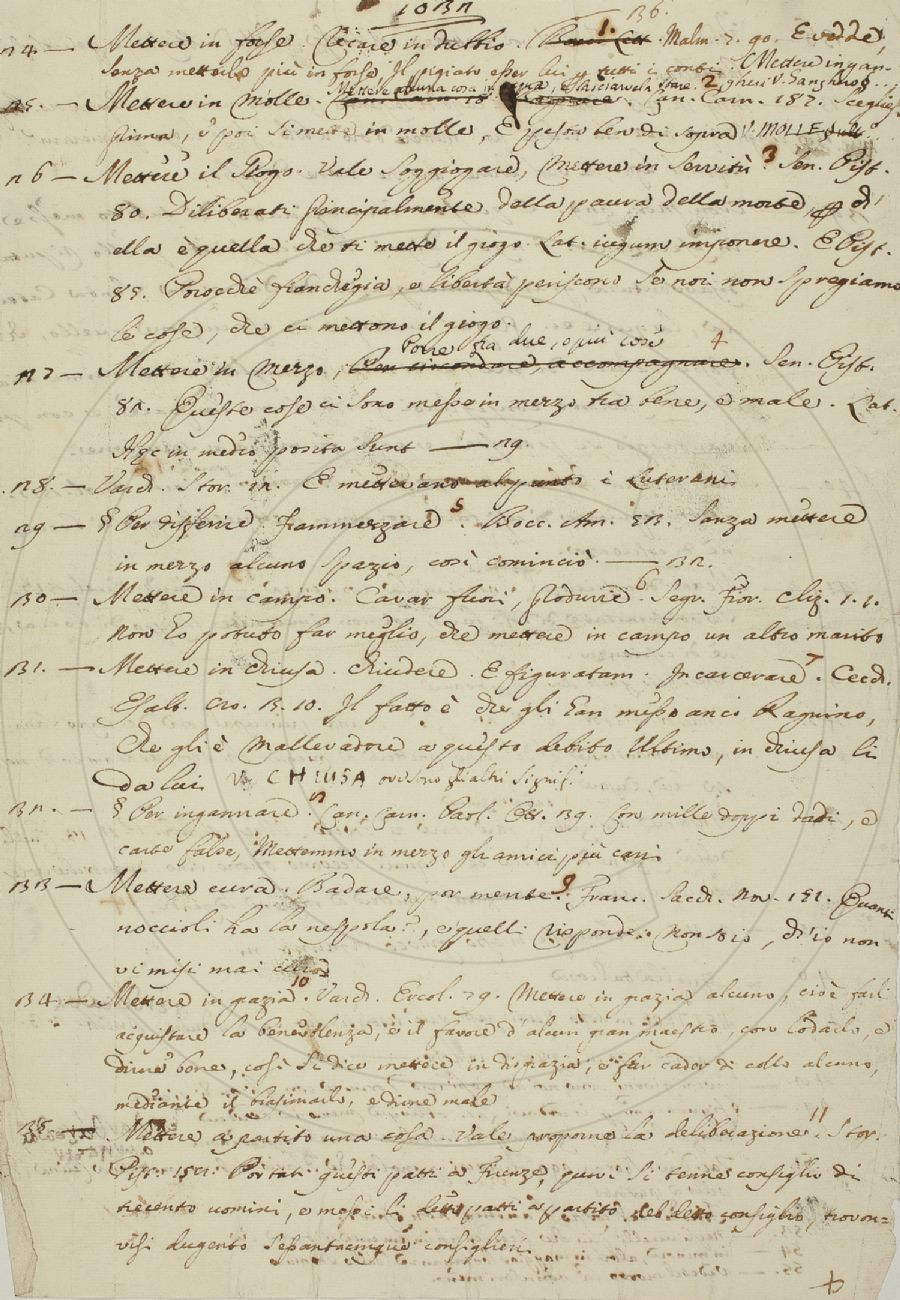 136.
124 — Mettere in forse. Recare in dubbio. 1. Malm. 7. 90. E vedde,
senza metterlo più in forse Il pigiato esser lui tutti i conti
125. — Mettere in Molle. Mettere alcuna cosa in acqua, e lasciarvela stare. 2 Can. Carn. 187.
prima, e poi si mette in molle, E pesta ben di sopra V. MOLLE
126 — Mettere il Giogo. Vale Soggiogare, Mettere in Servitù 3 Sen. Pist.
80. Diliberati principalmente della paura della morte, ed
ella è quella che ti mette il giogo. Lat. iugum imponere. E Pist.
85. Perocchè franchigia, e libertà periscono se noi non spregiamo
le cose, che ci mettono il giogo.
127 — Mettere in Mezzo, Porre fra due, o più cose 4 Per circondare, accompagnare. Sen. Pist.
82. Queste cose ci sono messe in mezzo tra bene, e male. Lat.
Hæc in medio posita sunt — 129.
128. — Varch. Stor. 12. E mettevano i Luterani
129 — § Per differire. Frammezzare 5. Bocc. Am. 53. Sanza mettere
in mezzo alcuno spazio, così cominciò. — 132.
130 — Mettere in campo. Cavar fuori, produrre 6. Segr. Fior. Cliz. 1. 1.
Non ho potuto far meglio, che mettere in campo un altro marito
131. — Mettere in chiusa. Chiudere. E figuratam. Incarcerare 7. Cecch.
Esalt. Cro. 3. 10. Il fatto è che gli han messo anci Raguino,
Che gli è mallevadore a questo debito Ultimo, in chiusa lì
da lui. V. CHIUSA ove sono gli altri signif.
132. — § Per ingannare. Can. Carn. Paol. Ott. 39. Con mille doppi dadi, e
carte false, Mettemmo in mezzo gli amici più cari
133 — Mettere cura. Badare, por mente. 9 Franc. Sacch. Nov. 151. Quanti
noccioli ha la nespola?, e quelli risponde: Non so io, ch'io non
vi misi mai cura
134 — Mettere in grazia 10. Varch. Ercol. 79. Mettere in grazia alcuno, cioè farli
acquistare la benevolenza, o il favore d'alcun gran maestro, con lodarlo, e
dirne bene, così si dice mettere in disgrazia, e far cader di collo alcuno,
mediante il biasimarlo, e dirne male
135 — Mettere a partito una cosa. Vale proporne la deliberazione 11. Stor.
Pist. 151. Portati questi patti a Firenze, quivi si tenne consiglio di
trecento uomini, e messi li detti patti a partito nel detto consiglio, trovon=
visi dugento sessantacinque consiglieri